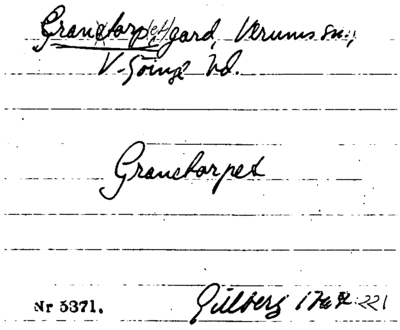 Granetorp(et) gård, Verums sn.,
V-Göinge hd.
Granetorpet
Nr 5371.
Gillberg 221